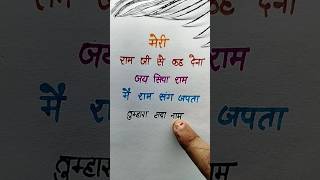 मेरी
राम जी से कह देना
जय सिया राम
मै राम संग जपता
तुम्हारा सदा नाम
तुम्हारा